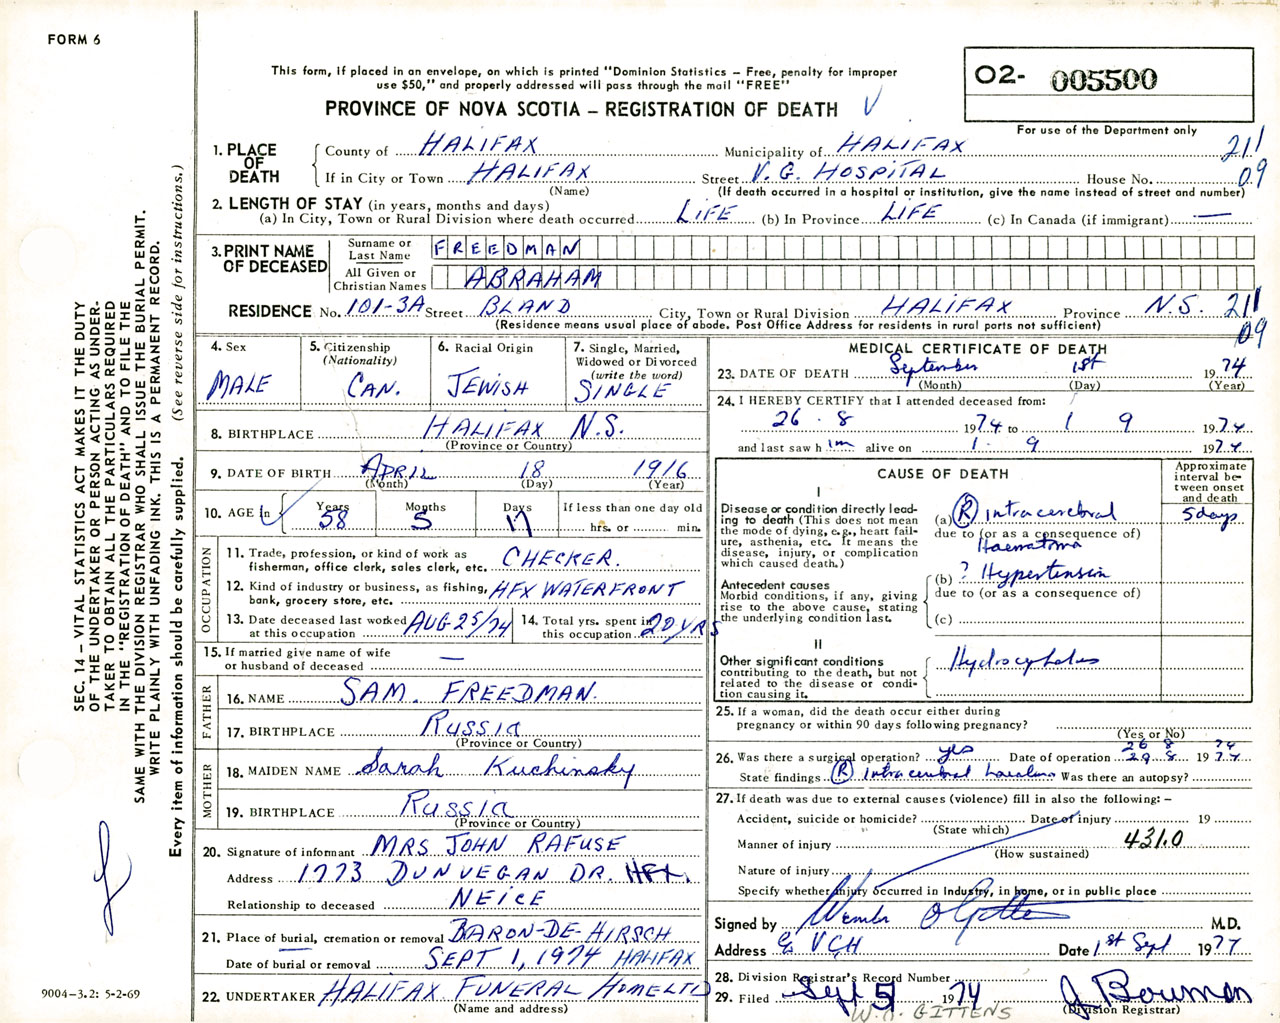 FORM 6
This form, if placed in an envelope, on which is printed "Dominion Statistics – Free, penalty for improper
use $50," and properly addressed will pass through the mail "FREE"
PROVINCE OF NOVA SCOTIA – REGISTRATION OF DEATH
O2- 005500
For use of the Department only
1. PLACE OF DEATH
County of HALIFAX Municipality of HALIFAX 211
If in City or Town HALIFAX Street V.G. HOSPITAL House No. 09
(Name) (If death occurred in a hospital or institution, give the name instead of street and number)
2. LENGTH OF STAY (in years, months and days)
(a) In City, Town or Rural Division where death occurred LIFE (b) In Province LIFE (c) In Canada (if immigrant) —
3. PRINT NAME OF DECEASED
Surname or Last Name FREEDMAN
All Given or Christian Names ABRAHAM
RESIDENCE No. 101-3A Street BLAND City, Town or Rural Division HALIFAX Province N.S. 211
(Residence means usual place of abode. Post Office Address for residents in rural parts not sufficient) 09
4. Sex MALE
5. Citizenship (Nationality) CAN.
6. Racial Origin JEWISH
7. Single, Married, Widowed or Divorced (write the word) SINGLE
8. BIRTHPLACE HALIFAX N.S.
(Province or Country)
9. DATE OF BIRTH APRIL 18 1916
(Month) (Day) (Year)
10. AGE in Years 58 Months 5 Days 17 If less than one day old hrs. or min.
OCCUPATION
11. Trade, profession, or kind of work as
fisherman, office clerk, sales clerk, etc. CHECKER.
12. Kind of industry or business, as fishing, HFX WATERFRONT
bank, grocery store, etc.
13. Date deceased last worked at this occupation AUG 25/74
14. Total yrs. spent in this occupation 20 YRS
15. If married give name of wife
or husband of deceased —
FATHER
16. NAME SAM. FREEDMAN.
17. BIRTHPLACE RUSSIA
(Province or Country)
MOTHER
18. MAIDEN NAME Sarah Kuchinsky
19. BIRTHPLACE RUSSIA
(Province or Country)
20. Signature of informant MRS JOHN RAFUSE
Address 1773 DUNVEGAN DR. HFX.
Relationship to deceased NEICE
21. Place of burial, cremation or removal BARON-DE-HIRSCH
Date of burial or removal SEPT 1, 1974 HALIFAX
22. UNDERTAKER HALIFAX FUNERAL HOME LTD
(Name and address)
MEDICAL CERTIFICATE OF DEATH
23. DATE OF DEATH September 1st 1974
(Month) (Day) (Year)
24. I HEREBY CERTIFY that I attended deceased from:
26 . 8 1974 to 1 9 1974
and last saw him alive on 1 . 9 1974
CAUSE OF DEATH
Approximate interval between onset and death
I
Disease or condition directly leading to death (This does not mean the mode of dying, e.g., heart failure, asthenia, etc. It means the disease, injury, or complication which caused death.)
(a) (R) Intracerebral 5 days
due to (or as a consequence of)
Haematoma
Antecedent causes
Morbid conditions, if any, giving rise to the above cause, stating the underlying condition last.
(b) ? Hypertension
due to (or as a consequence of)
(c)
II
Other significant conditions contributing to the death, but not related to the disease or condition causing it.
Hydrocephalus
25. If a woman, did the death occur either during
pregnancy or within 90 days following pregnancy?
(Yes or No)
26 8 74
26. Was there a surgical operation? yes Date of operation 29 8 1974
State findings (R) Intracerebral haematoma Was there an autopsy?
27. If death was due to external causes (violence) fill in also the following: –
Accident, suicide or homicide? Date of injury 19
(State which)
Manner of injury 431.0
(How sustained)
Nature of injury
Specify whether injury occurred in industry, in home, or in public place
Signed by M.D.
Address VGH Date 1st Sept 1977
28. Division Registrar's Record Number
29. Filed Sept 5 1974 J Bowman
(Division Registrar)
W. GITTENS
SEC. 14 – VITAL STATISTICS ACT MAKES IT THE DUTY
OF THE UNDERTAKER OR PERSON ACTING AS UNDER-
TAKER TO OBTAIN ALL THE PARTICULARS REQUIRED
IN THE "REGISTRATION OF DEATH" AND TO FILE THE
SAME WITH THE DIVISION REGISTRAR WHO SHALL ISSUE THE BURIAL PERMIT.
WRITE PLAINLY WITH UNFADING INK. THIS IS A PERMANENT RECORD.
Every item of information should be carefully supplied. (See reverse side for instructions.)
9004-3.2: 5-2-69